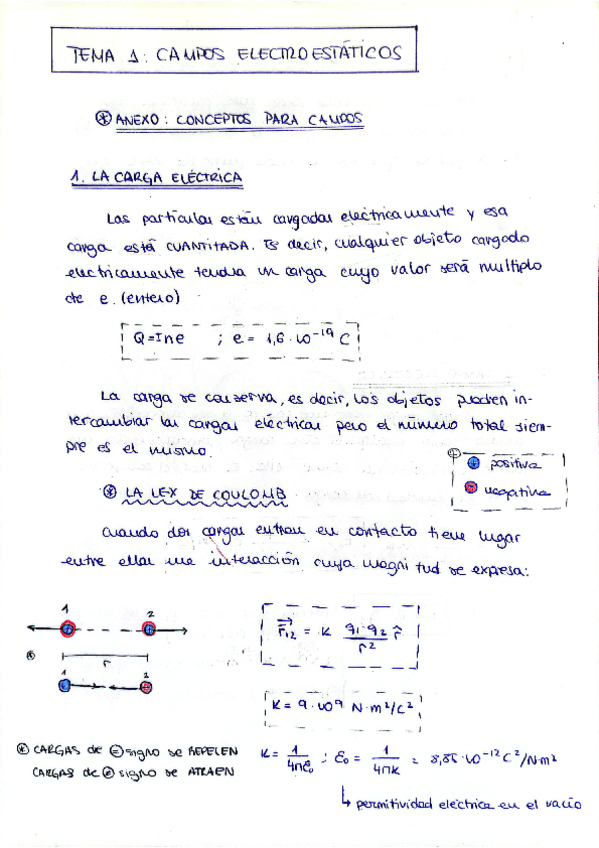 TEMA 1: CAMPOS ELECTROESTÁTICOS
⊛ ANEXO: CONCEPTOS PARA CAMPOS
1. LA CARGA ELÉCTRICA
Las partículas están cargadas eléctricamente y esa
carga está CUANTITADA. Es decir, cualquier objeto cargado
electricamente tendra un carga cuyo valor será multiplo
de e. (entero)
Q = ±ne ; e = 1,6·10⁻¹⁹ C
La carga se conserva, es decir, los objetos pueden in-
tercambiar las cargas eléctricas pero el número total siem-
pre es el mismo.
positiva
negativa
⊛ LA LEY DE COULOMB
Cuando dos cargas entran en contacto tiene lugar
entre ellas una interacción cuya magnitud se expresa:
1 2
F₁₂ = K q₁·q₂/r² r̂
r
1 2
K = 9·10⁹ N·m²/C²
⊛ CARGAS de = signo se REPELEN
CARGAS de ≠ signo se ATRAEN
K = 1/4πε₀ ; ε₀ = 1/4πK = 8,85·10⁻¹² C²/N·m²
↳ permitividad eléctrica en el vacío